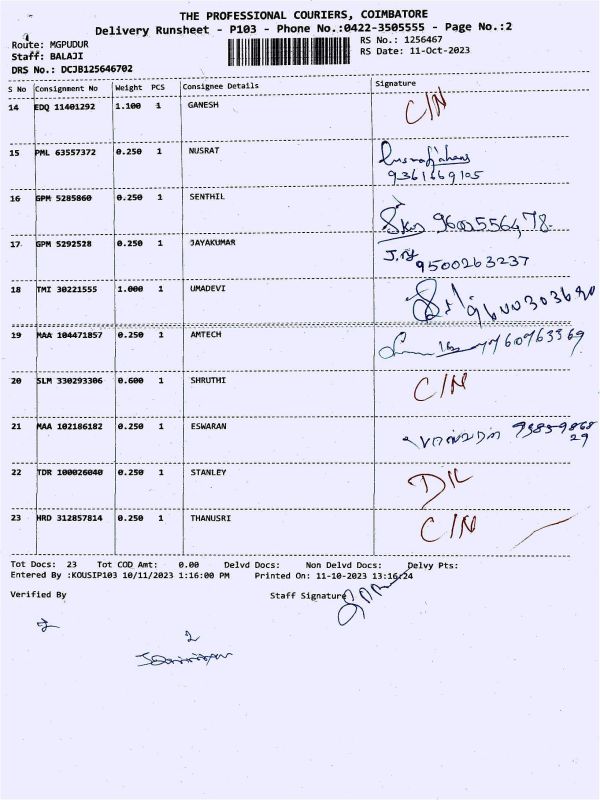 THE PROFESSIONAL COURIERS, COIMBATORE
Delivery Runsheet - P103 - Phone No.:0422-3505555 - Page No.:2
Route: MGPUDUR
RS No.: 1256467
Staff: BALAJI
RS Date: 11-Oct-2023
DRS No.: DCJB125646702
S No Consignment No Weight PCS Consignee Details Signature
14 EDQ 11401292 1.100 1 GANESH C/N
15 PML 63557372 0.250 1 NUSRAT
9361669105
16 GPM 5285860 0.250 1 SENTHIL
9600556478
17 GPM 5292528 0.250 1 JAYAKUMAR
9500263237
18 TMI 30221555 1.000 1 UMADEVI
19 MAA 104471857 0.250 1 AMTECH
20 SLM 330293306 0.600 1 SHRUTHI C/N
21 MAA 102186182 0.250 1 ESWARAN
22 TDR 100026040 0.250 1 STANLEY D/L
23 HRD 312857814 0.250 1 THANUSRI C/N
Tot Docs: 23 Tot COD Amt: 0.00 Delvd Docs: Non Delvd Docs: Delvy Pts:
Entered By :KOUSIP103 10/11/2023 1:16:00 PM Printed On: 11-10-2023 13:16:24
Verified By Staff Signature